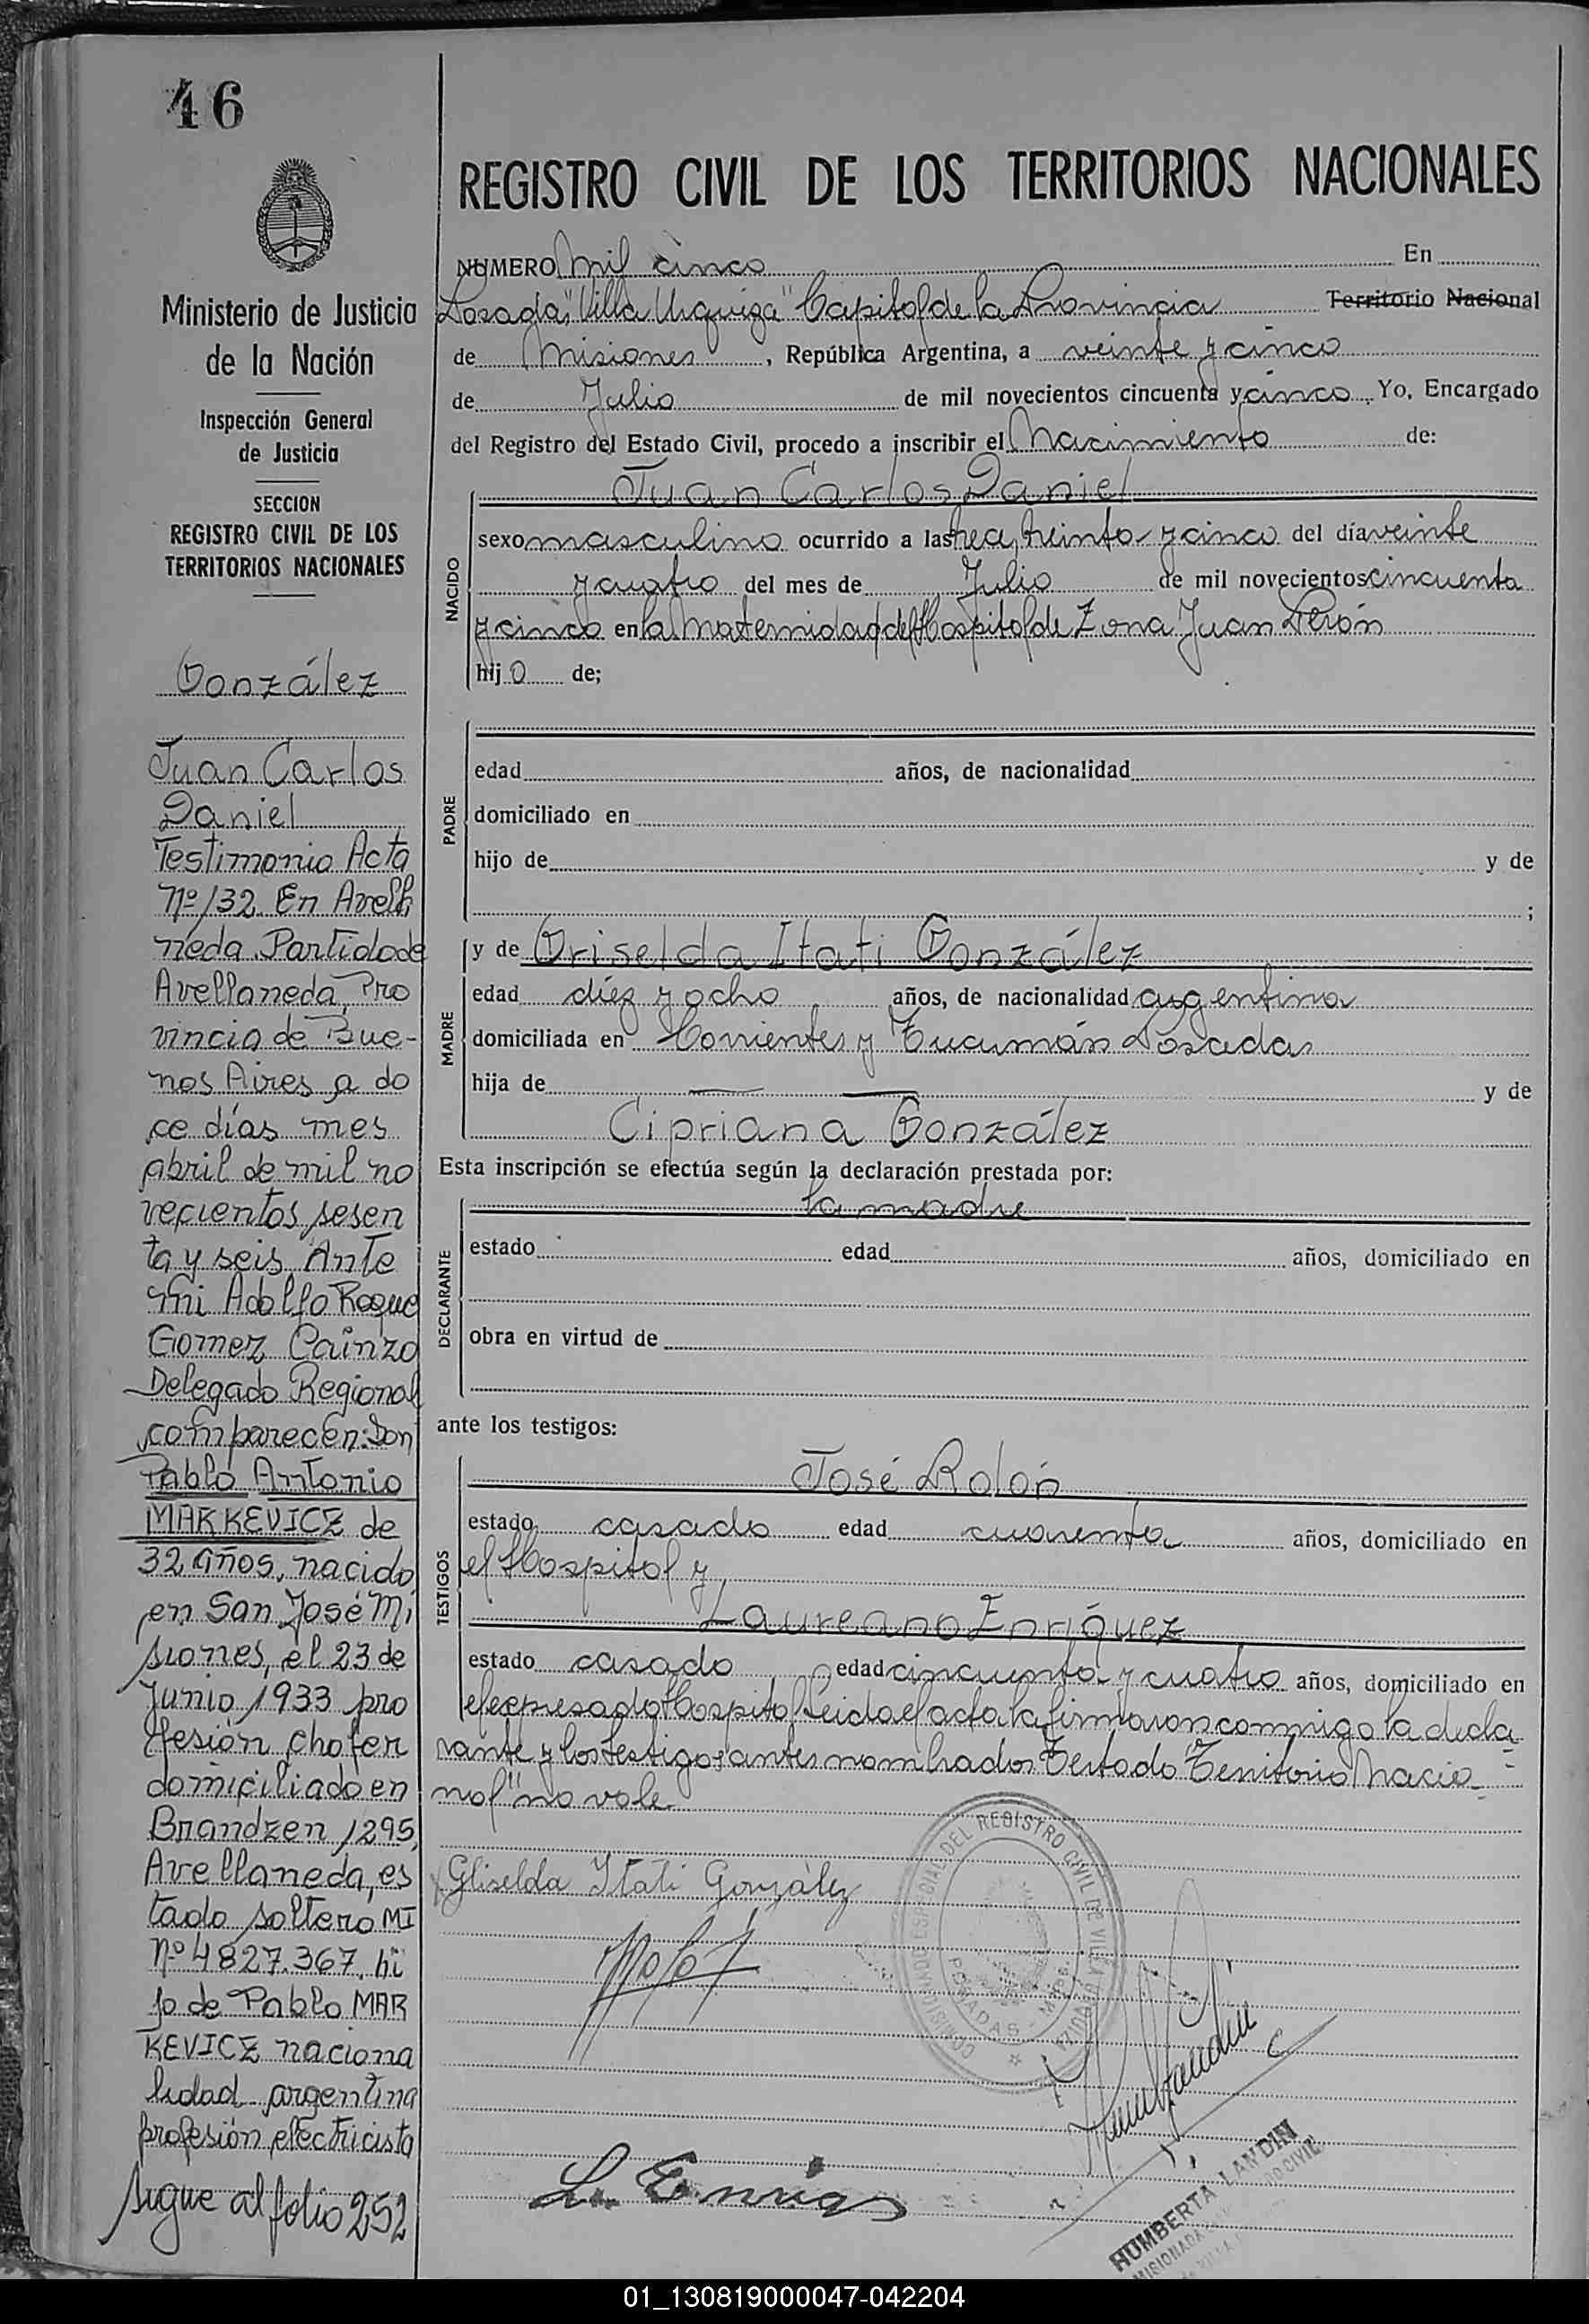 46
Ministerio de Justicia
de la Nación
Inspección General
de Justicia
SECCION
REGISTRO CIVIL DE LOS
TERRITORIOS NACIONALES
González
Juan Carlos
Daniel
Testimonio Acta
Nº 132. En Avella
neda. Partido de
Avellaneda, Pro
vincia de Bue-
nos Aires, a do
ce días mes
abril de mil no
vecientos sesen
ta y seis. Ante
mi Adolfo Roque
Gomez Cainzo
Delegado Regional
comparecen: Don
Pablo Antonio
MARKEVICZ de
32 años, nacido
en San José Mi
siones, el 23 de
Junio 1933 pro
fesión chofer
domiciliado en
Brandzen 1295,
Avellaneda, es
tado soltero MI
Nº 4827.367. hi
jo de Pablo MAR
KEVICZ naciona
lidad argentina
profesión electricista
sigue al folio 252
REGISTRO CIVIL DE LOS TERRITORIOS NACIONALES
NUMERO Mil cinco En
Posadas, "Villa Urquiza" Capital de la Provincia Territorio Nacional
de Misiones, República Argentina, a veinte y cinco
de Julio de mil novecientos cincuenta y cinco. Yo, Encargado
del Registro del Estado Civil, procedo a inscribir el Nacimiento de:
Juan Carlos Daniel
NACIDO
sexo masculino ocurrido a las tres, treinta y cinco del día veinte
y cuatro del mes de Julio de mil novecientos cincuenta
y cinco en la Maternidad del Hospital de Zona Juan Perón
hijo de;
PADRE
edad años, de nacionalidad
domiciliado en
hijo de y de
;
MADRE
y de Griselda Itati González
edad diez y ocho años, de nacionalidad argentina
domiciliada en Corrientes y Tucumán Posadas
hija de y de
Cipriana González
Esta inscripción se efectúa según la declaración prestada por:
la madre
DECLARANTE
estado edad años, domiciliado en
obra en virtud de
ante los testigos:
TESTIGOS
José Rolón
estado casado edad cuarenta años, domiciliado en
el Hospital y
Laureano Enríquez
estado casado edad cincuenta y cuatro años, domiciliado en
el expresado Hospital Leida el acta la firmaron conmigo la decla
rante y los testigos antes nombrados Testado "Territorio Nacio-
nal" no vale
Gliselda Itati González
COMISIONADO ESPECIAL DEL REGISTRO CIVIL DE VILLA URQUIZA
POSADAS - Mnes.
L. Enriq
HUMBERTA LANDINI